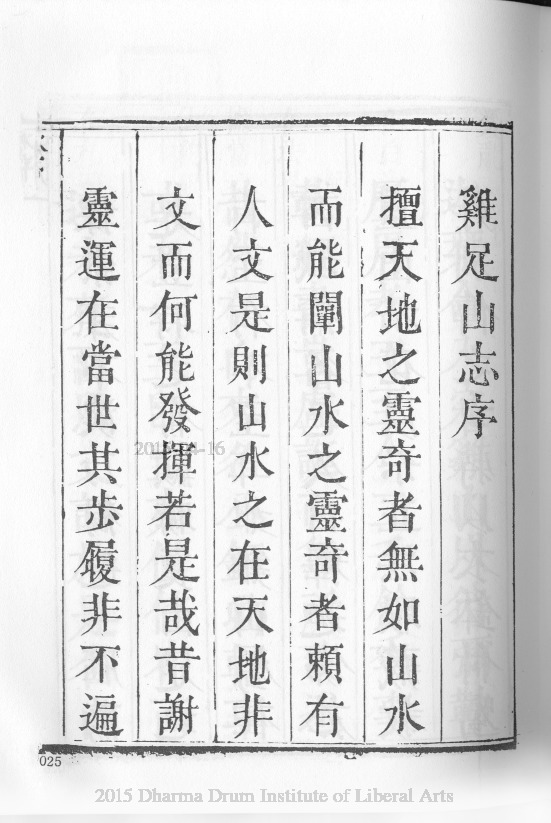 雞足山志序
擅天地之靈奇者無如山水
而能闡山水之靈奇者賴有
人文是則山水之在天地非
文而何能發揮若是哉昔謝
靈運在當世其步履非不遍
025
2015 Dharma Drum Institute of Liberal Arts